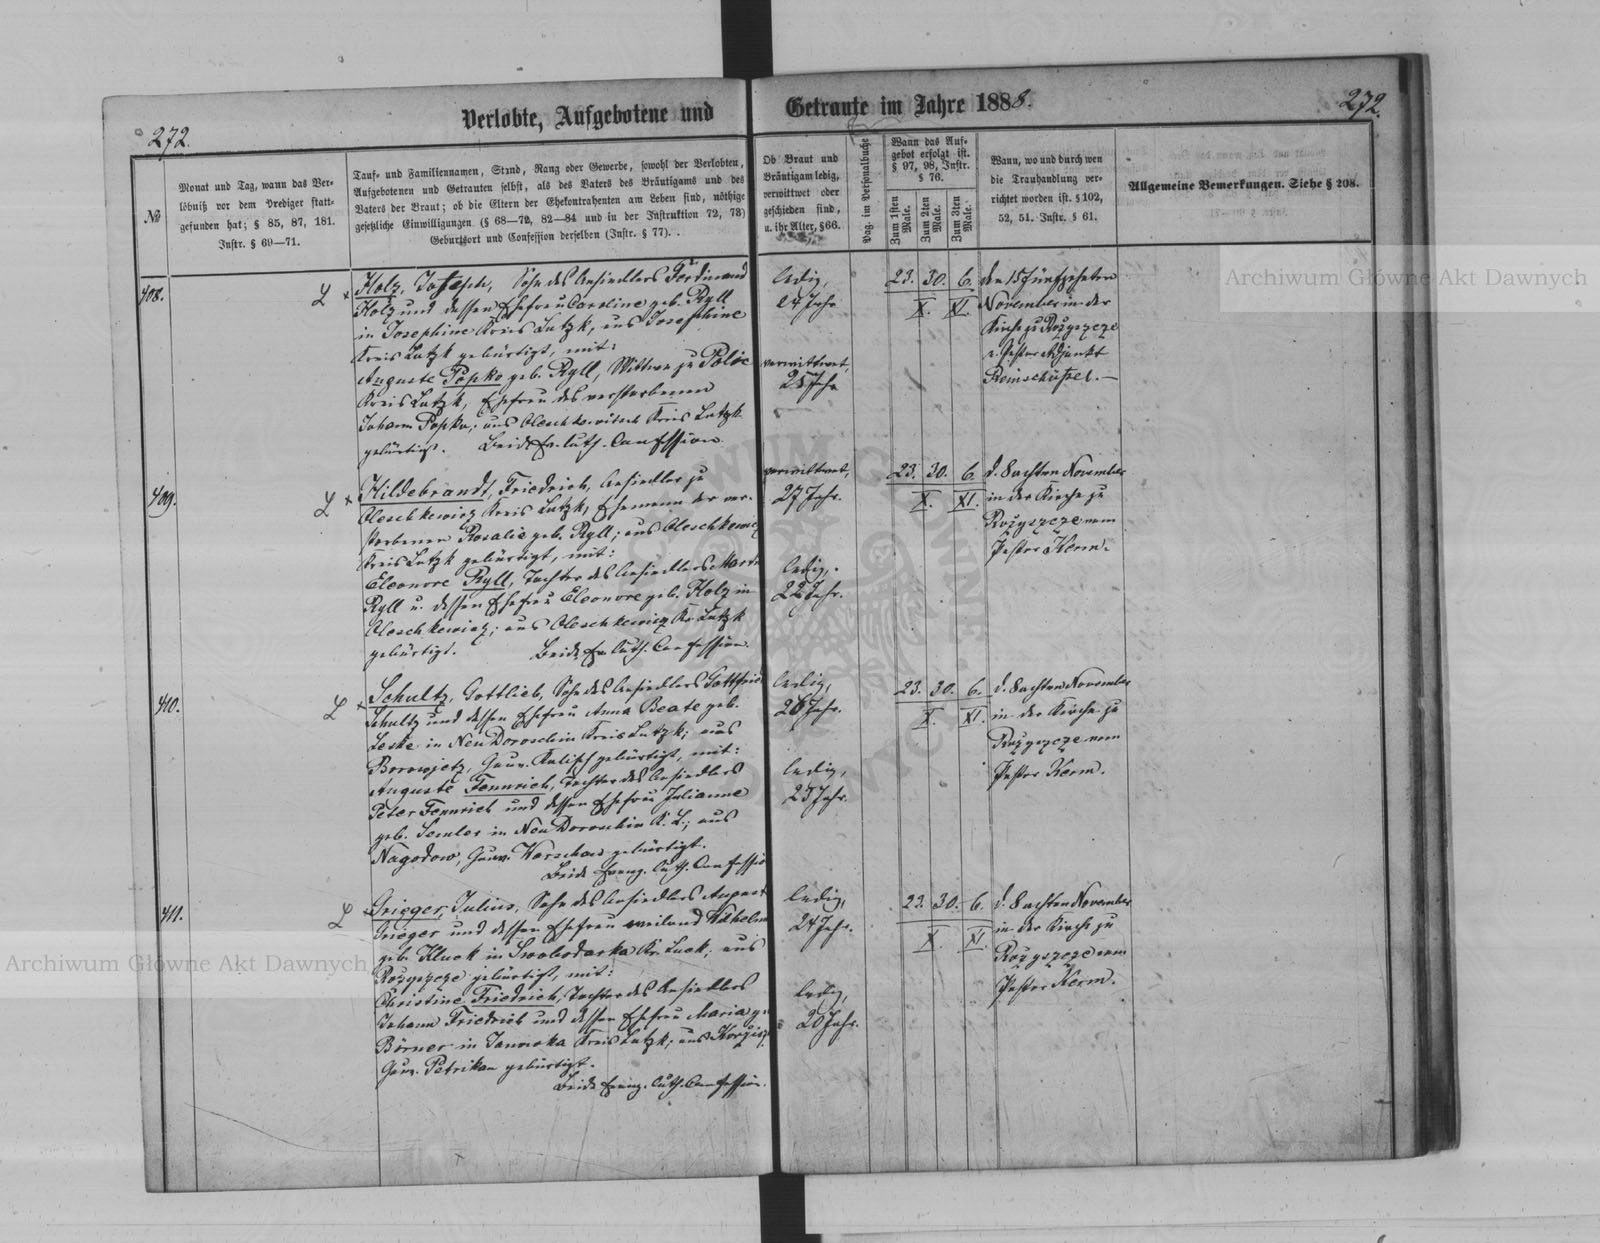 Verlobte, Aufgebotene und Getraute im Jahre 1888.
272.
272.
No
Monat und Tag, wann das Ver-
löbniß vor dem Prediger statt-
gefunden hat; § 85, 87, 181.
Instr. § 69—71.
Tauf- und Familiennamen, Stand, Rang oder Gewerbe, sowohl der Verlobten,
Aufgebotenen und Getrauten selbst, als des Vaters des Bräutigams und des
Vaters der Braut; ob die Eltern der Ehekontrahenten am Leben sind, nöthige
gesetzliche Einwilligungen (§ 68—72, 82—84 und in der Instruktion 72, 73)
Geburtsort und Confession derselben (Instr. § 77).
Ob Braut und
Bräutigam ledig,
verwittwet oder
geschieden sind,
u. ihr Alter, § 66.
Pag. im Personalbuche
Wann das Auf-
gebot erfolgt ist.
§ 97, 98, Instr.
§ 76.
Zum 1sten Male.
Zum 2ten Male.
Zum 3ten Male.
Wann, wo und durch wen
die Trauhandlung ver-
richtet worden ist. § 102,
52, 51. Instr. § 61.
Allgemeine Bemerkungen. Siehe § 208.
408.
Holz, Joseph, Sohn des Ansiedlers Ferdinand
Holz und dessen Ehefrau Caroline geb. Ryll
in Josephine Kreis Lutzk, aus Josephine
Kreis Lutzk gebürtigt, mit:
Auguste Popko geb. Ryll, Wittwe zu
Kreis Lutzk, Ehefrau des verstorbenen
Johann Popko; aus Oleschkowitsch Kreis Lutzk
gebürtigt. Beide Ev. luth. Confession.
ledig,
24 Jahr
verwittwet,
25 Jahr
23. 30. 6.
X. XI.
den 15 fünfzehnten
November in der
Kirche zu Rożyszcze
v. Pastor Adjunkt
409.
Hildebrandt, Friedrich, Ansiedler zu
Oleschkewicz Kreis Lutzk, Ehemann der ver-
storbenen Rosalie geb. Ryll; aus Oleschkewicz
Kreis Lutzk gebürtigt, mit:
Eleonore Ryll, Tochter des Ansiedlers
Ryll u. dessen Ehefrau Eleonore geb. Holz in
Oleschkewicz; aus Oleschkewicz Kr. Lutzk
gebürtigt. Beide Ev. Luth. Confession.
verwittwet,
27 Jahr.
ledig,
22 Jahr.
23. 30. 6.
X. XI.
d. 8 achten November
in der Kirche zu
Rożyszcze vom
Pastor Kerm.
410.
Schultz, Gottlieb, Sohn des Ansiedlers Gottfried
Schultz und dessen Ehefrau Anna Beate geb.
Leske in Neu Doroschin Kreis Lutzk; aus
Gouv. Kalisch gebürtigt, mit:
Auguste Fennrich, Tochter des Ansiedlers
Peter Fennrich und dessen Ehefrau Julianne
geb. Semler in Neu Doroschin K. L.; aus
Nagodow, Gouv. Warschau gebürtigt.
Beide Evang. Luth. Confession
ledig,
26 Jahr.
ledig,
23 Jahr.
23. 30. 6.
X. XI.
d. 8 achten November
in der Kirche zu
Rożyszcze vom
Pastor Kerm.
411.
Grieger, Julius, Sohn des Ansiedlers August
Grieger und dessen Ehefrau weiland Wilhelmine
geb. Kluck in Swobodarka Kr. Luck; aus
Rożyszcze gebürtigt, mit:
Christine Friedrich, Tochter des Ansiedlers
Johann Friedrich und dessen Ehefrau Maria geb.
Börner in Janowka Kreis Lutzk; aus
Gouv. Petrikau gebürtigt.
Beide Evang. Luth. Confession.
ledig,
24 Jahr.
ledig,
20 Jahr.
23. 30. 6.
X. XI.
d. 8 achten November
in der Kirche zu
Rożyszcze vom
Pastor Kerm.
Archiwum Główne Akt Dawnych
Archiwum Główne Akt Dawnych